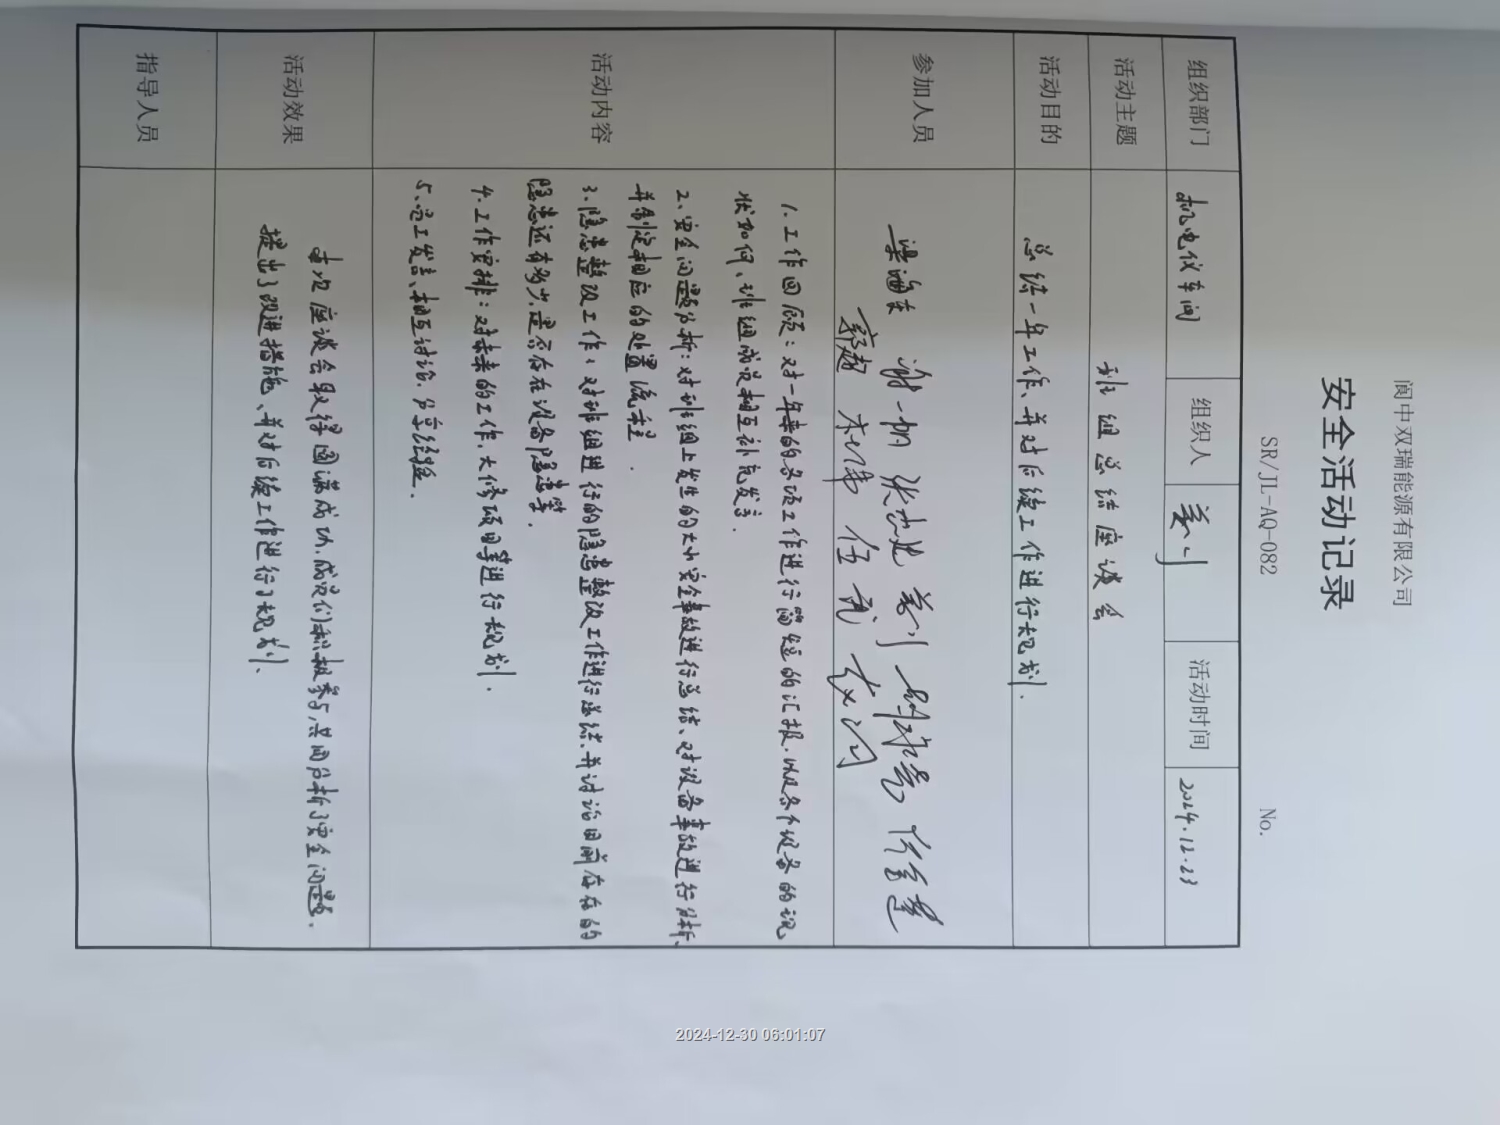 阆中双瑞能源有限公司
安全活动记录
SR/JL-AQ-082 No.
组织部门 机电仪车间 组织人 活动时间 2024.12.23
活动主题 班组总结座谈会
活动目的 总结一年工作、并对后续工作进行规划.
参加人员 张志建
伍武
活动内容 1.工作回顾：对一年来的各项工作进行简短的汇报.以及各个设备的现
状如何、班组成员相互补充发言.
2、安全问题分析：对班组上发生的大小安全事故进行总结、对设备事故进行分析、
并制定相应的处置流程.
3.隐患整改工作：对班组进行的隐患整改工作进行总结.并讨论目前存在的
隐患还有多少.是否存在设备隐患等.
4.工作安排：对未来的工作.大修项目等进行规划.
5、员工发言、相互讨论.分享经验.
活动效果 本次座谈会取得圆满成功.成员们积极参与,共同分析了安全问题.
提出了改进措施、并对后续工作进行了规划.
指导人员
2024-12-30 06:01:07